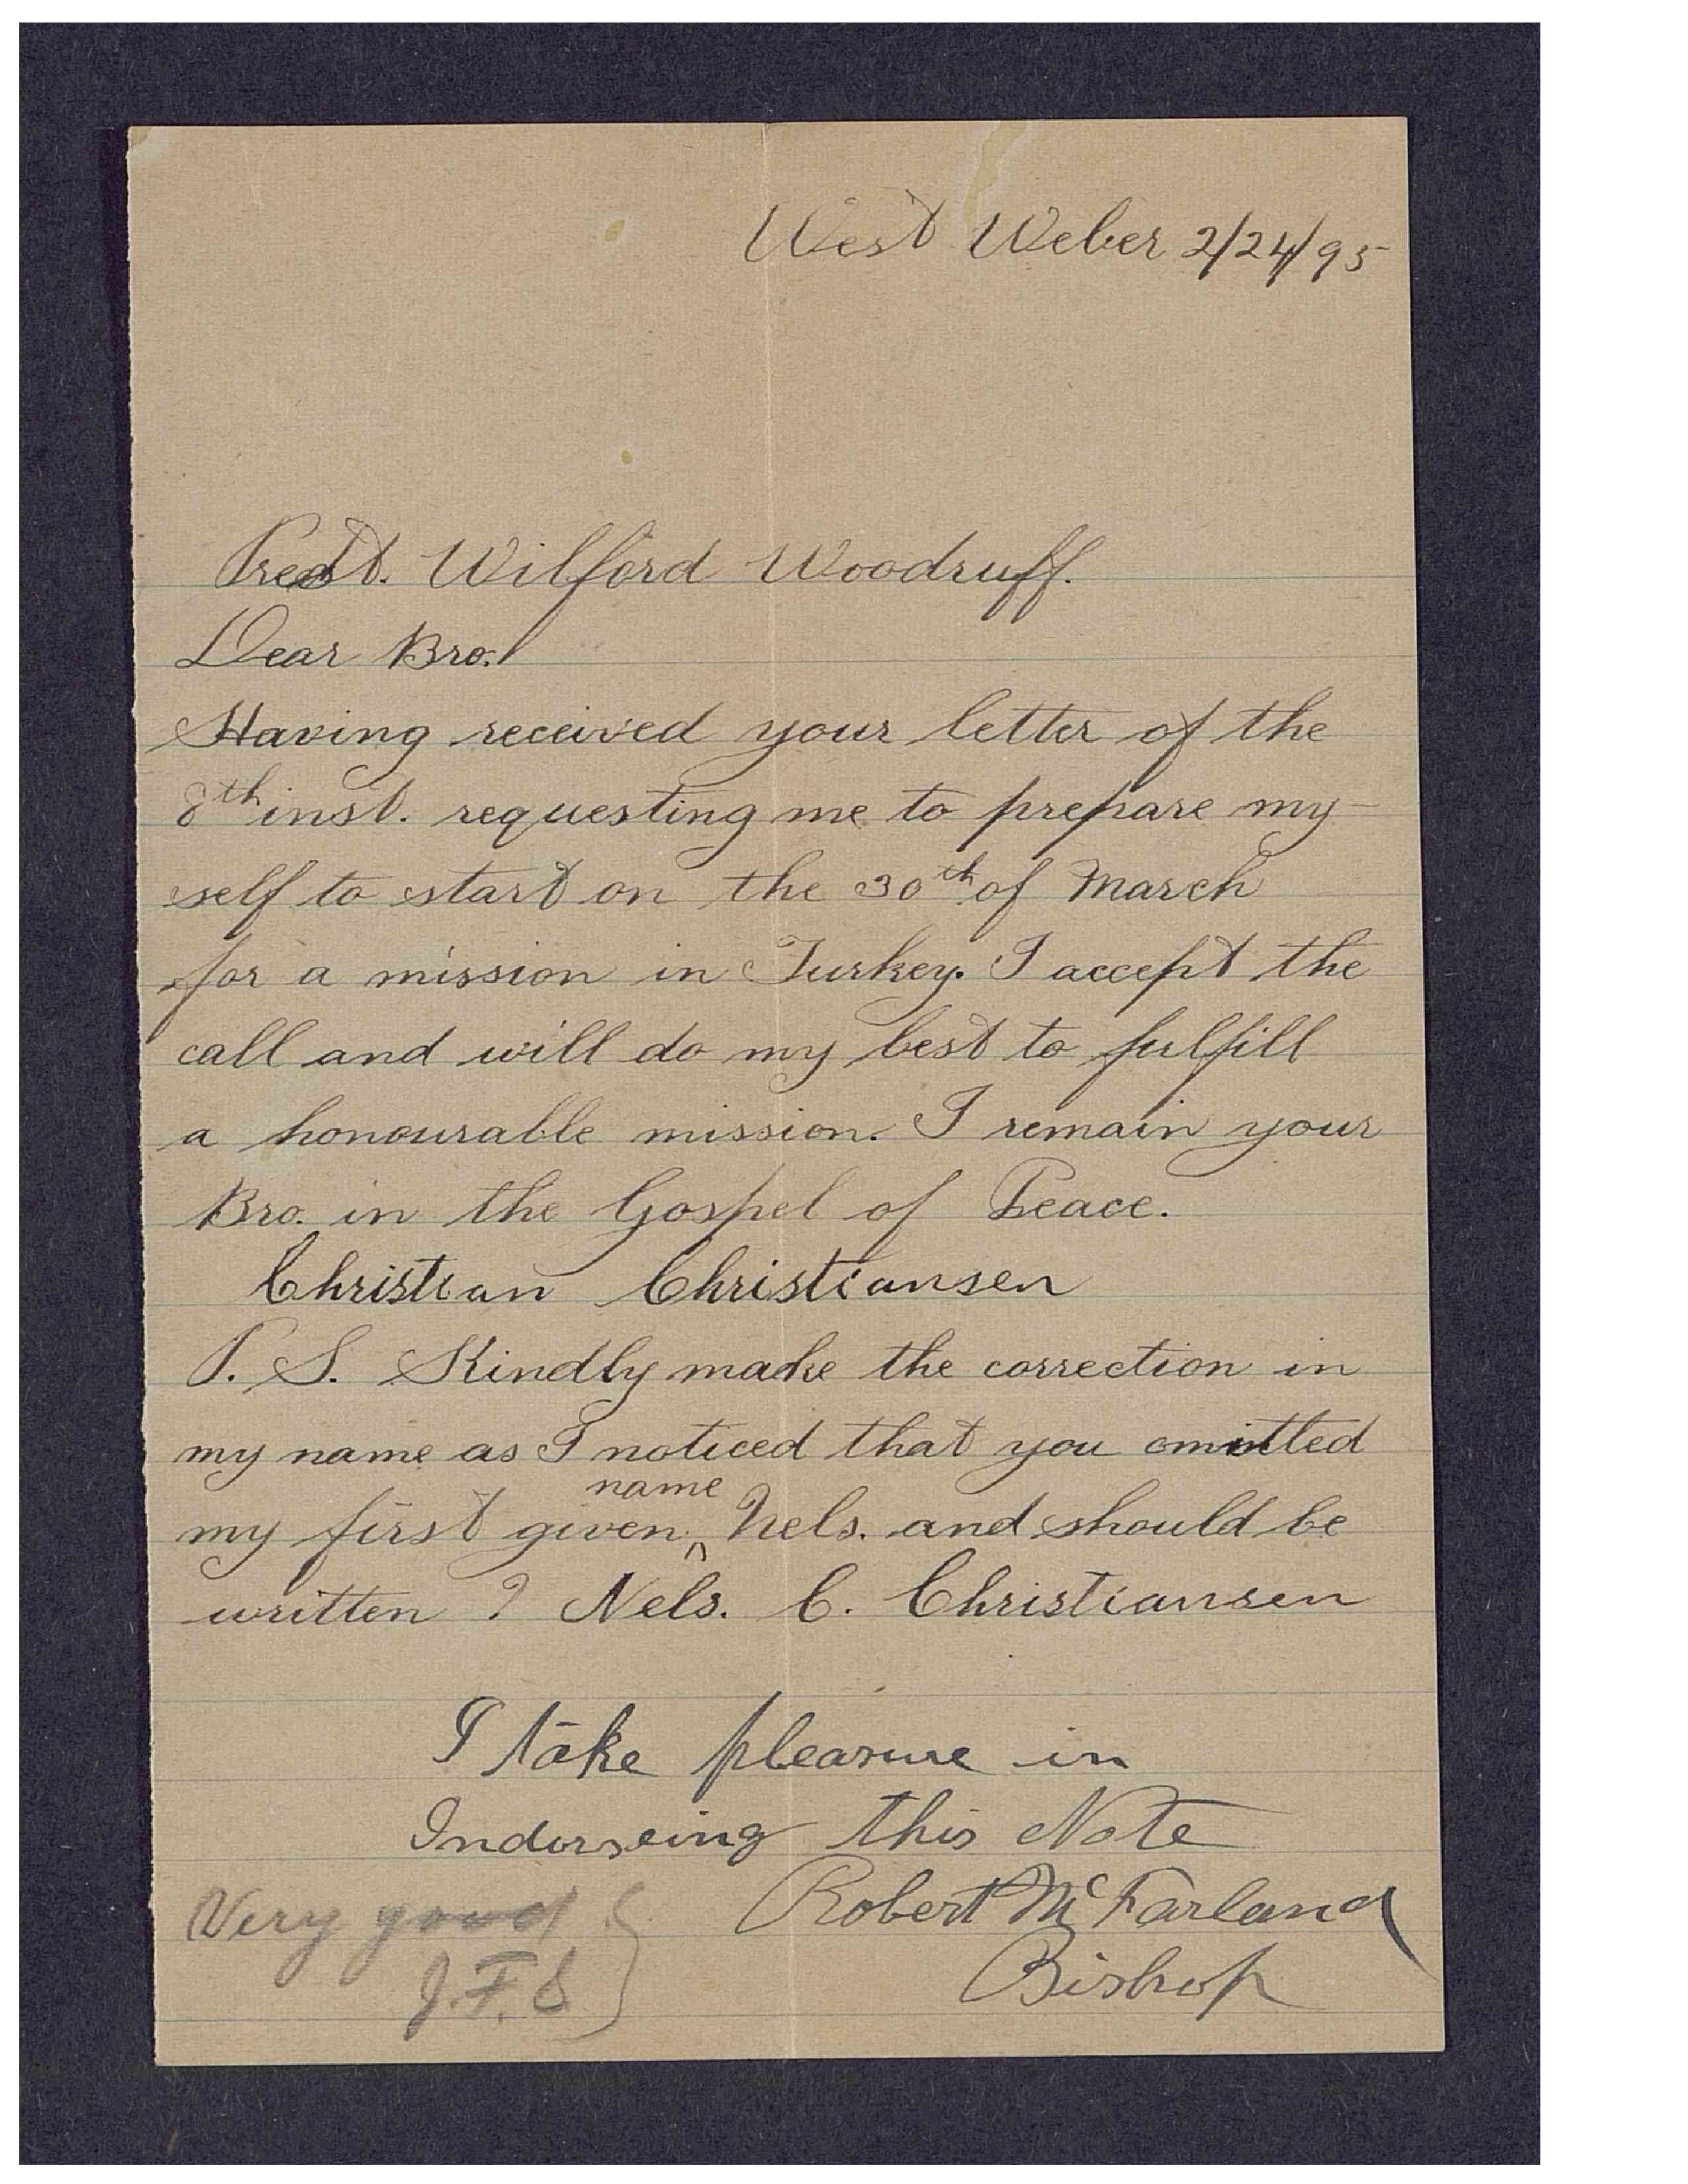 West Weber 2/24/95
Presdt. Wilford Woodruff.
Dear Bro.
Having received your letter of the
8th inst. requesting me to prepare my-
self to start on the 30th of March
for a mission in Turkey. I accept the
call and will do my best to fulfill
a honourable mission. I remain your
Bro. in the Gospel of Peace.
Christian Christiansen
P. S. Kindly make the correction in
my name as I noticed that you omitted
name
my first given ^ Nels. and should be
written ? Nels. C. Christiansen
I take pleasure in
Indorseing this Note
Robert McFarland
Bishop
Very good
J. F. S.